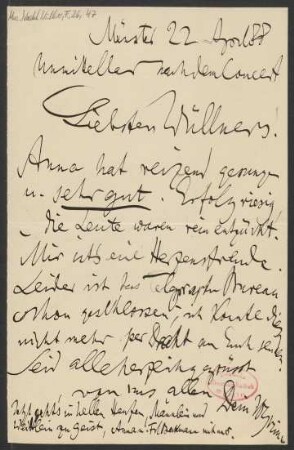 Münster 22 April 88
unmittelbar nach dem Concert
Liebsten Wüllners!
Anna hat reizend gesungen
u. sehr gut. Erfolg riesig
– die Leute waren rein entzückt.
Mir ist's eine Herzensfreude.
Leider ist das Telegraphen Bureau
schon geschlossen, ich konnte dies
nicht mehr per Draht an Euch senden
Seid alle herzlich gegrüsst
von uns allen Dem
Jetzt geht's in hellen Haufen, Männlein und
Weiblein zu Geist, Anna